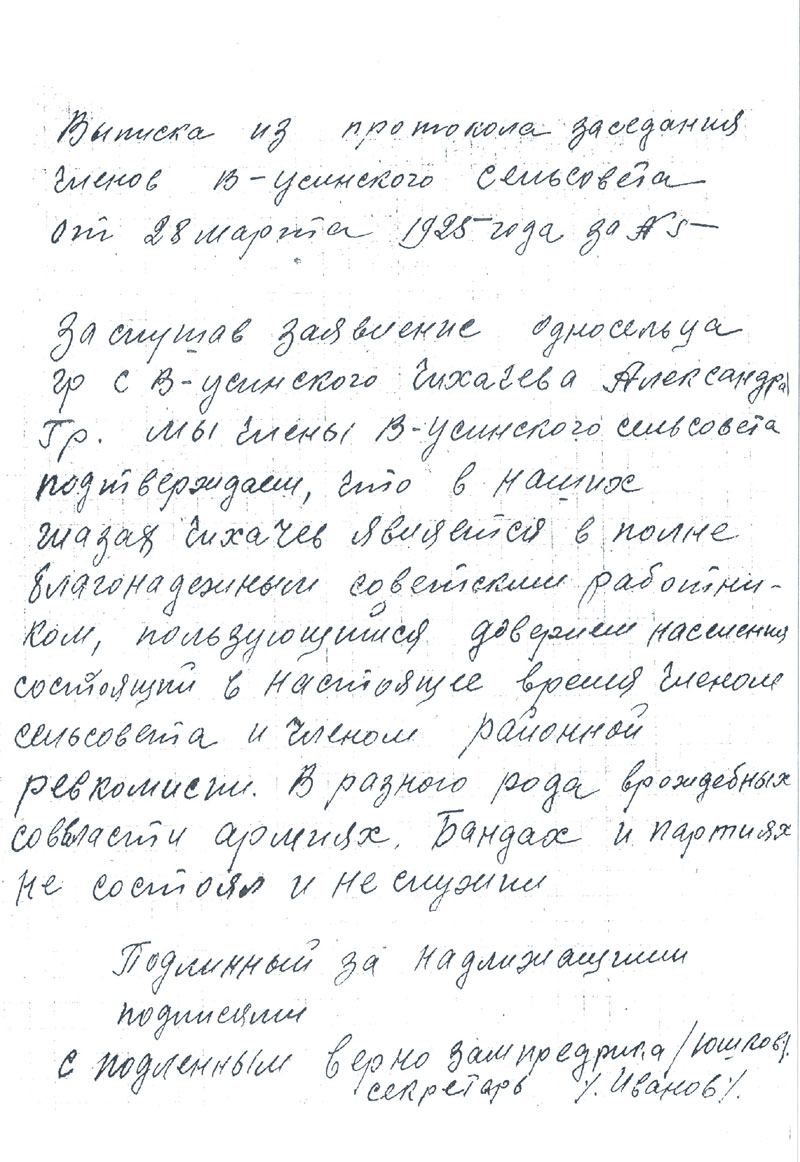 Выписка из протокола заседания
членов В-усинского сельсовета
от 28 марта 1925 года за № 5
Заслушав заявление односельца
гр с В-усинского Чихачева Александра
Гр. мы члены В-Усинского сельсовета
подтверждаем, что в наших
глазах Чихачев является в полне
благонадежным советским работни-
ком, пользующимся доверием населения
состоящий в настоящее время членом
сельсовета и членом районной
ревкомисии. В разного рода врождебных
соввласти армиях. Бандах и партиях
не состоял и не служил
Подлинный за надлижащими
подписями
с подленным верно зампредрика /Юшков/.
секретарь /.Иванов/.